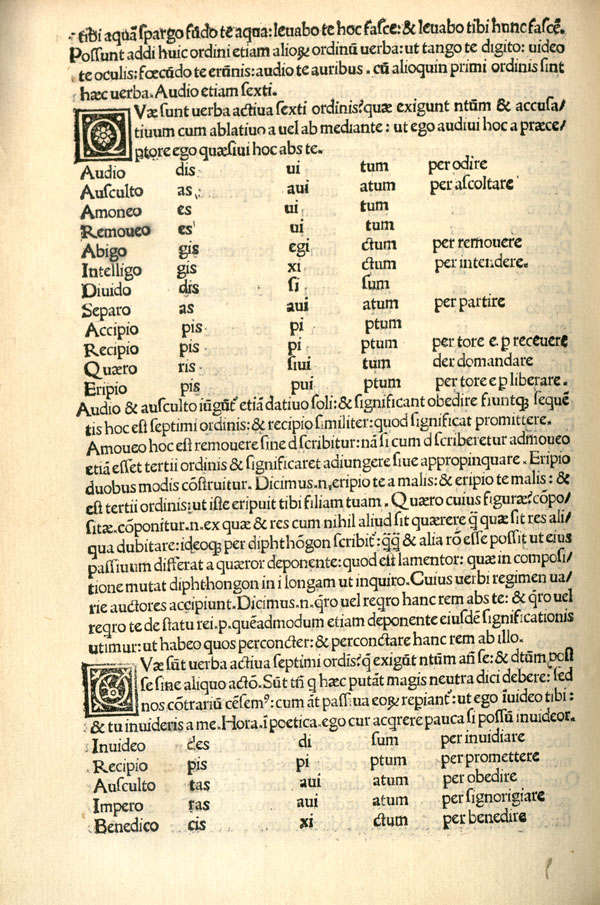 tibi aquā spargo fūdo te aqua: leuabo te hoc fasce: & leuabo tibi hunc fascē.
Possunt addi huic ordini etiam alioꝝ ordinū uerba: ut tango te digito: uideo
te oculis: fœcūdo te erūnis: audio te auribus. cū alioquin primi ordinis sint
hæc uerba. Audio etiam sexti.
QVæ sunt uerba actiua sexti ordinis? quæ exigunt ntūm & accusa/
tiuum cum ablatiuo a uel ab mediante: ut ego audiui hoc a præce/
ptore ego quæsiui hoc abs te.
Audio dis ui tum per odire
Ausculto as aui atum per ascoltare
Amoneo es ui tum
Remoueo es ui tum
Abigo gis egi ctum per remouere
Intelligo gis xi ctum per intendere.
Diuido dis si sum
Separo as aui atum per partire
Accipio pis pi ptum
Recipio pis pi ptum per tore e. p receuere
Quæro ris siui tum der domandare
Eripio pis pui ptum per tore e p liberare.
Audio & ausculto iūgūt' etiā datiuo soli: & significant obedire fiuntqꝫ sequē
tis hoc est septimi ordinis: & recipio similiter: quod significat promittere.
Amoueo hoc est remouere sine d scribitur: nā si cum d scriberetur admoueo
etiā esset tertii ordinis & significaret adiungere siue appropinquare. Eripio
duobus modis cōstruitur. Dicimus.n. eripio te a malis: & eripio te malis: &
est tertii ordinis: ut iste eripuit tibi filiam tuam. Quæro cuius figuræ? cōpo/
sitæ. cōponitur.n. ex quæ & res cum nihil aliud sit quærere q̄ quæ sit res ali/
qua dubitare: ideoqꝫ per diphthōgon scribit': q̄q̄ & alia rō esse possit ut eius
passiuum differat a quæror deponente: quod est lamentor: quæ in composi/
tione mutat diphthongon in i longam ut inquiro. Cuius uerbi regimen ua/
rie auctores accipiunt. Dicimus.n. q̄ro uel reqro hanc rem abs te: & q̄ro uel
reqro te de statu rei. p. quēadmodum etiam deponente eiusdē significationis
utimur: ut habeo quos perconcter: & perconctare hanc rem ab illo.
QVæ sūt uerba actiua septimi ordīs? q̄ exigūt ntūm an̄ se: & dtūm post
se sine aliquo actō. Sūt tn̄ q hæc putāt magis neutra dici debere: sed
nos cōtrariū cēsemꝰ: cum āt passiua eoꝝ repiant': ut ego īuideo tibi:
& tu inuideris a me. Hora. ī poetica. ego cur acqrere pauca si possū inuideor.
Inuideo des di sum per inuidiare
Recipio pis pi ptum per promettere
Ausculto tas aui atum per obedire
Impero ras aui atum per signorigiare
Benedico cis xi ctum per benedire